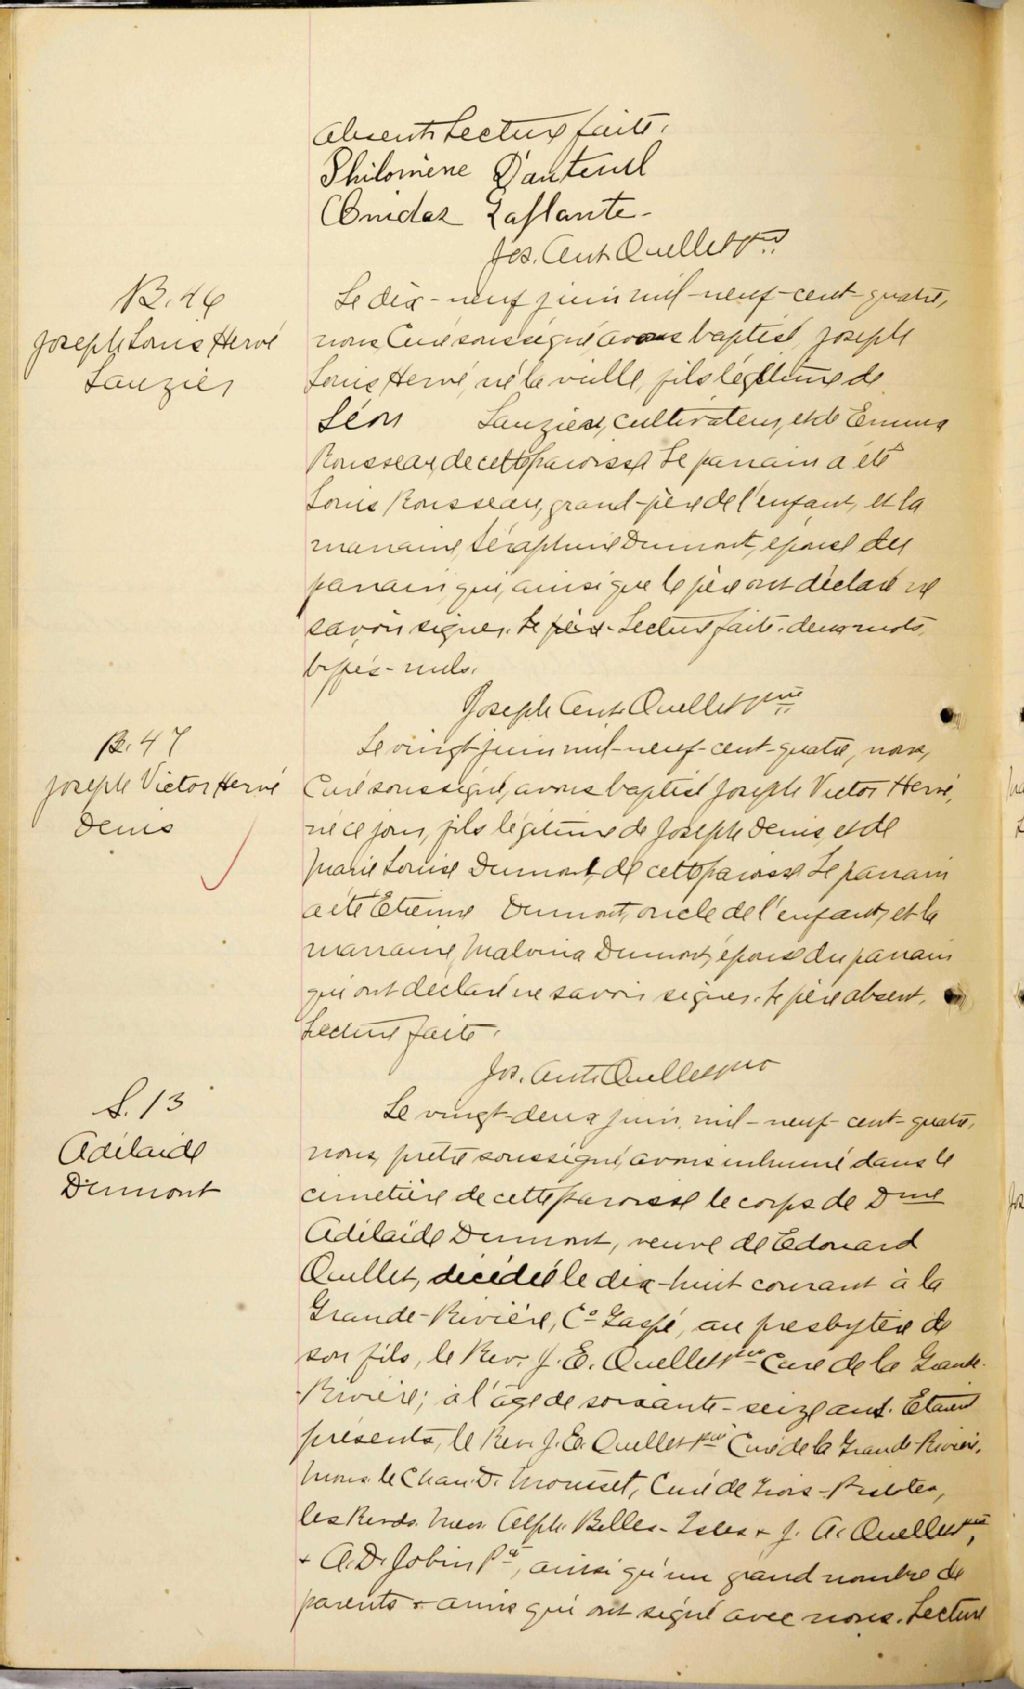 absent. Lecture faite.
Philomène D'auteuil
Omidas Laflante-
Jos. Ant. Ouellet Ptre
B. 46
Joseph Louis Hervé
Lauzier
Le dix-neuf juin mil-neuf-cent-quatre,
nous Curé soussigné, avons baptisé, Joseph
Louis Hervé, né la veille, fils légitime de
Léon Lauzier, cultivateur, et de Emma
Rousseau, de cette paroisse. Le parrain a été
Louis Rousseau, grand-père de l'enfant, et la
marraine Séraphine Dumont, épouse du
parrain, qui, ainsi que le père ont déclaré ne
savoir signer. Le père. Lecture faite. deux mots
biffés-nuls.
Joseph Ant. Ouellet Ptre
B. 47
Joseph Victor Hervé
Denis
Le vingt juin mil-neuf-cent-quatre, nous,
Curé soussigné, avons baptisé Joseph Victor Hervé,
né ce jour, fils légitime de Joseph Denis, et de
Marie Louise Dumont, de cette paroisse. Le parrain
a été Etienne Dumont, oncle de l'enfant, et la
marraine, Malvina Dumont, épouse du parrain
qui ont déclaré ne savoir signer. Le père absent.
Lecture faite.
Jos. Ant. Ouellet ptre
S. 13
Adélaide
Dumont
Le vingt-deux juin mil-neuf-cent-quatre,
nous, prêtre soussigné, avons inhumé dans le
cimetière de cette paroisse le corps de Dme
Adélaïde Dumont, veuve de Edouard
Ouellet, décédée le dix-huit courant à la
Grande-Rivière, Co Gaspé, au presbytère de
son fils, le Rev. J. E. Ouellet Ptre Curé de la Grande-
Rivière; à l'âge de soixante-seize ans. Etaient
présents, le Rev. J. E. Ouellet Ptre Curé de la Grande-Rivière,
Mons. le Chan. D. Morisset, Curé de Trois-Pistoles,
les Revds. Mess. Alph. Belles-Isles & J. A. Ouellet Ptre,
& A. D. Jobin Ptre, ainsi qu'un grand nombre de
parents & amis qui ont signé avec nous. Lecture